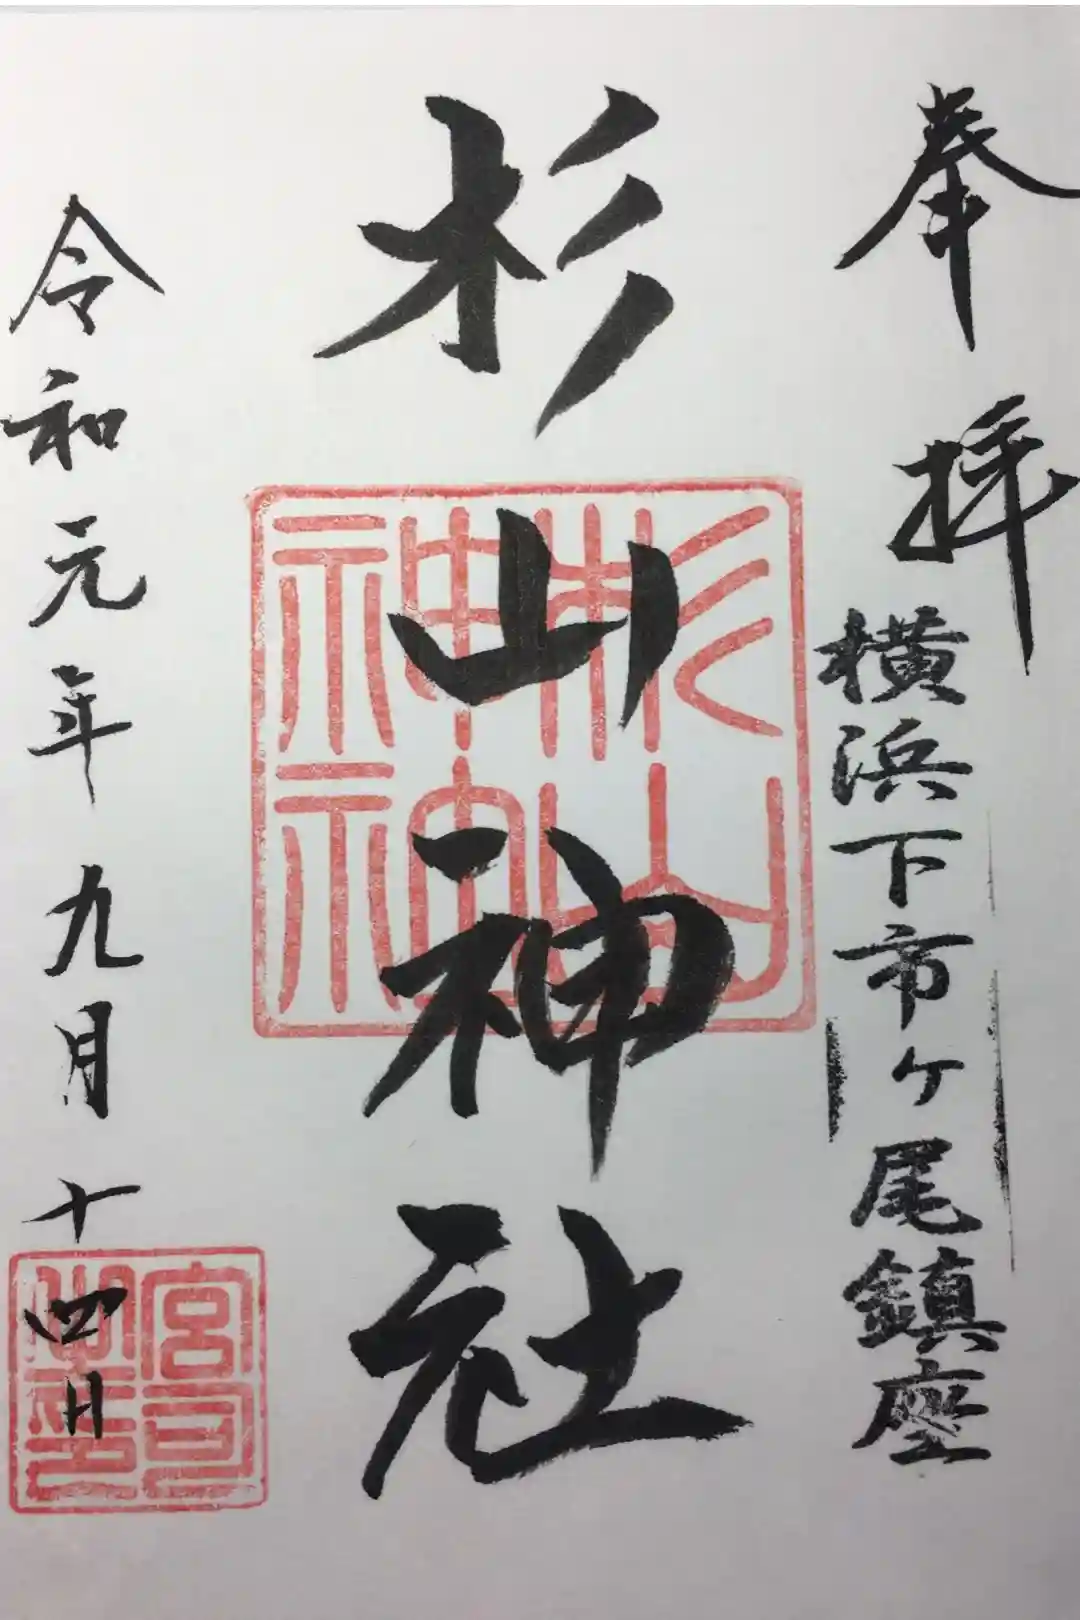 奉拝
横浜下市ケ尾鎮座
杉山神社
杉山神社
令和元年九月十四日
宮司之印